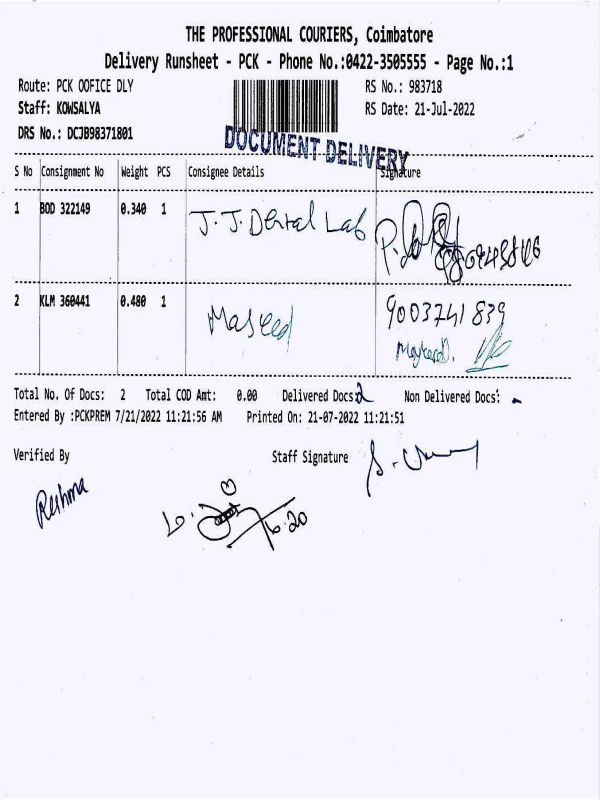 THE PROFESSIONAL COURIERS, Coimbatore
Delivery Runsheet - PCK - Phone No.:0422-3505555 - Page No.:1
Route: PCK OOFICE DLY RS No.: 983718
Staff: KOWSALYA RS Date: 21-Jul-2022
DRS No.: DCJB98371801
DOCUMENT DELIVERY
S No Consignment No Weight PCS Consignee Details Signature
1 BOD 322149 0.340 1 J.J. Dental Lab
2 KLM 360441 0.480 1 Maseed 9003741839
Total No. Of Docs: 2 Total COD Amt: 0.00 Delivered Docs: 2 Non Delivered Docs: -
Entered By :PCKPREM 7/21/2022 11:21:56 AM Printed On: 21-07-2022 11:21:51
Verified By Staff Signature
Reshma